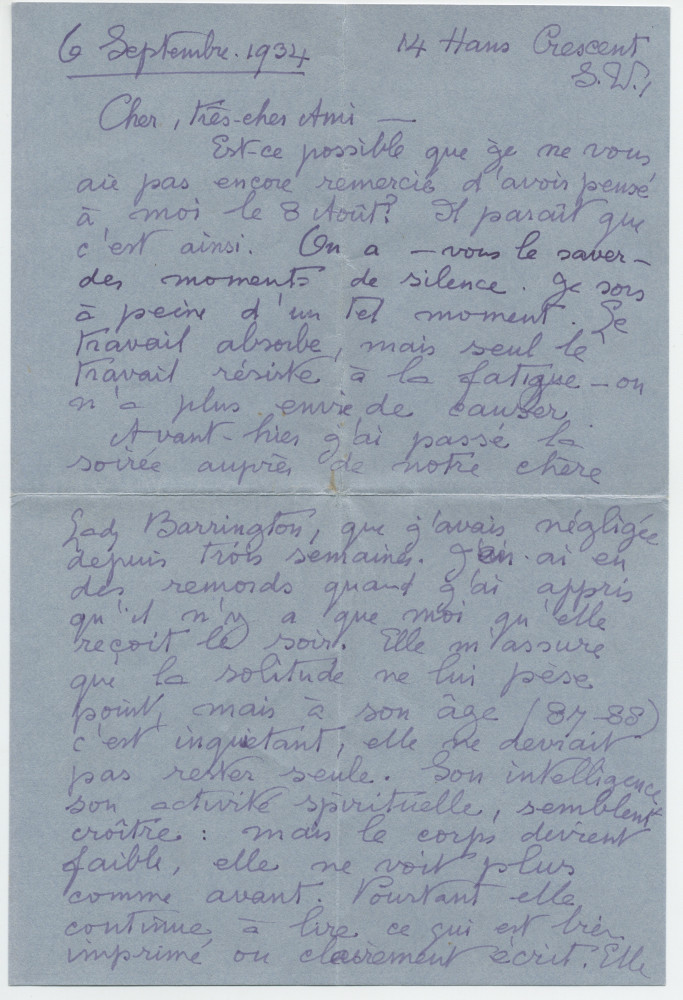 6 Septembre. 1934
14 Hans Crescent
S.W.1
Cher, très-cher Ami —
Est-ce possible que je ne vous
aie pas encore remercié d'avoir pensé
à moi le 8 Août? Il paraît que
c'est ainsi. On a — vous le saver —
des moments de silence. Je sors
à peine d'un tel moment. Le
travail absorbe, mais seul le
travail résiste à la fatigue — on
n'a plus envie de causer.
Avant-hier j'ai passé la
soirée auprès de notre chère
Lady Barrington, que j'avais négligée
depuis trois semaines. J'en ai eu
des remords quand j'ai appris
qu'il n'y a que moi qu'elle
reçoit le soir. Elle m'assure
que la solitude ne lui pèse
point, mais à son âge (87-88)
c'est inquiétant, elle ne devrait
pas rester seule. Son intelligence,
son activité spirituelle, semblent
croître : mais le corps devient
faible, elle ne voit plus
comme avant. Pourtant elle
continue à lire ce qui est bien
imprimé ou clairement écrit. Elle